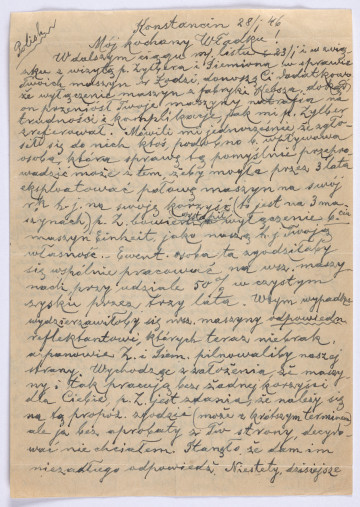 Polish
Konstancin 28/I 46
Mój kochany Władku!
W dalszym ciągu m/ listu z 23/I i w zwią-
zku z wizytą p. Zylbera i Siemiona w sprawie
Twoich maszyn w Łodzi, donoszę Ci dodatkowo
że wyłączenie maszyn z fabryki dokąd
on przeniósł Twoje maszyny natrafia na
trudności i komplikacje, jak mi p. Zylber
zreferował. Mówili mi jednocześnie że zgło-
sił się do nich ktoś, podobno b. wpływowa
osoba, która sprawę tą pomyślnie przepro-
wadzić może z tem, żeby mogła przez 3 lata
eksploatować połowę maszyn na swój
r-k h.j. na swoją korzyść (to jest na 3 ma-
szynach) p. Z. bowiem wyłączenie 6-ciu
maszyn Einheit, jako naszą h.j. Twoją
własność. Ewent. osoba ta zgodziłaby
się wspólnie pracować na wsz. maszy-
nach przy udziale 50% w czystym
zysku przez trzy lata. W tym wypadku
wydzierżawiłoby się wsz. maszyny odpowiedn.
reflektantowi, których teraz nie brak,
a panowie Z. i Siem. pilnowaliby naszej
strony. Wychodząc z założenia, że maszy-
ny i tak pracują bez żadnej korzyści
dla Ciebie p. Z. jest zdania, że należy się
na tą propoz. zgodzić (może z krótszym terminem)
ale ja bez aprobaty z Tw strony decydo-
wać nie chciałem. Stanęło, że dam im
niezadługo odpowiedź. Niestety, dzisiejsze